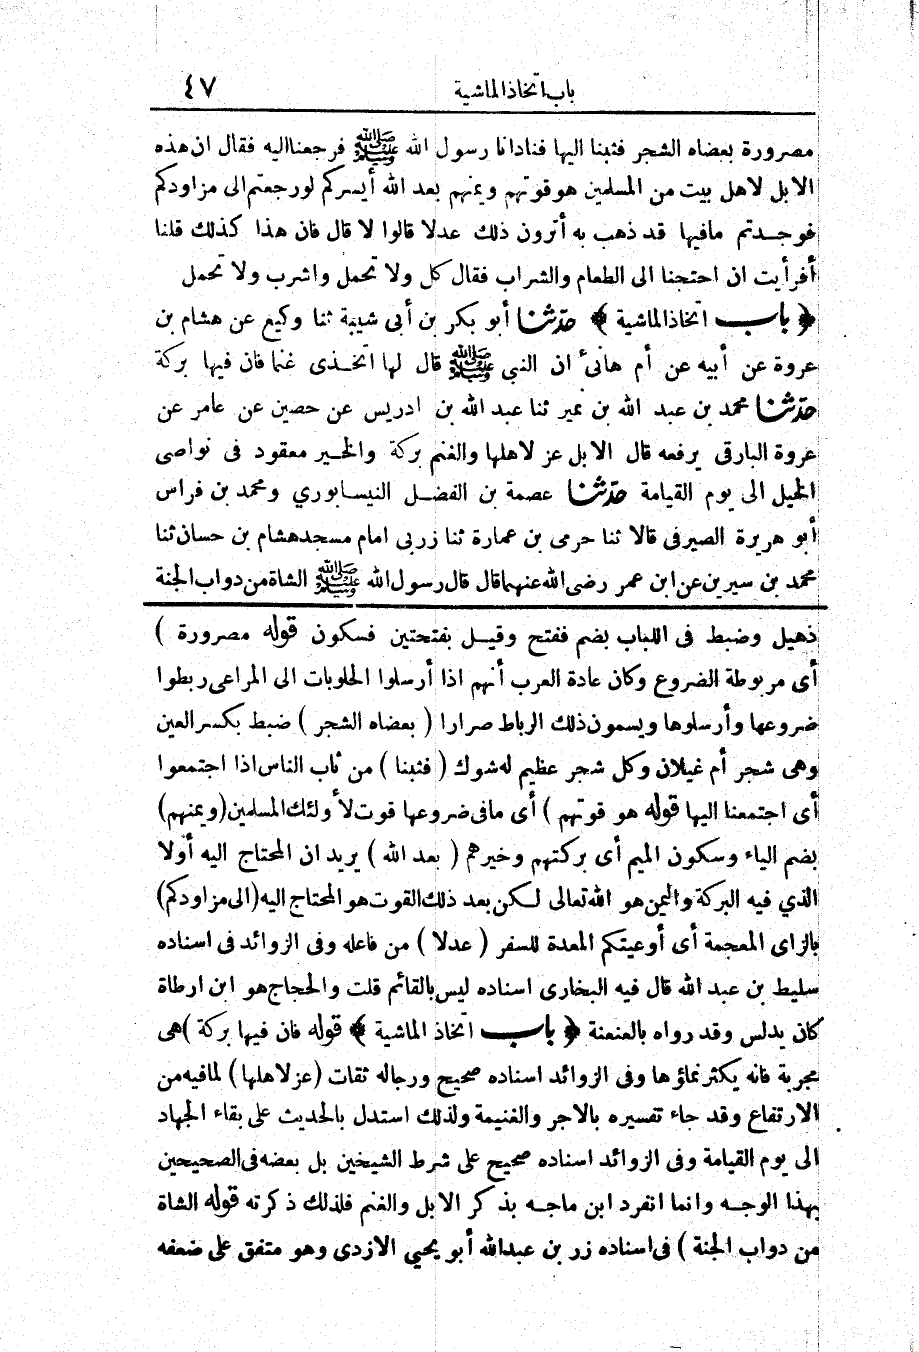 باب اتخاذ الماشية ٤٧
مصرورة بعضاه الشجر فثبنا اليها فنادانا رسول الله ﷺ فرجعنا اليه فقال ان هذه
الابل لاهل بيت من المسلمين هو قوتهم ويمنهم بعد الله أيسركم لو رجعتم الى مزاودكم
فوجدتم مافيها قد ذهب به أترون ذلك عدلا قالوا لا قال فان هذا كذلك قلنا
أفرأيت ان احتجنا الى الطعام والشراب فقال كل ولا تحمل واشرب ولا تحمل
﴿ باب اتخاذ الماشية ﴾ حدثنا أبو بكر بن أبى شيبة ثنا وكيع عن هشام بن
عروة عن أبيه عن أم هانىء ان النبى ﷺ قال لها اتخذى غنما فان فيها بركة
حدثنا محمد بن عبد الله بن نمير ثنا عبد الله بن ادريس عن حصين عن عامر عن
عروة البارقى يرفعه قال الابل عز لاهلها والغنم بركة والخير معقود فى نواصى
الخيل الى يوم القيامة حدثنا عصمة بن الفضل النيسابوري ومحمد بن فراس
أبو هريرة الصيرفى قالا ثنا حرمى بن عمارة ثنا زربى امام مسجد هشام بن حسان ثنا
محمد بن سيرين عن ابن عمر رضى الله عنهما قال قال رسول الله ﷺ الشاة من دواب الجنة
ذهيل وضبط فى اللباب بضم ففتح وقيل بفتحتين فسكون قوله مصرورة )
أى مربوطة الضروع وكان عادة العرب أنهم اذا أرسلوا الحلوبات الى المراعى ربطوا
ضروعها وأرسلوها ويسمون ذلك الرباط صرارا ( بعضاه الشجر ) ضبط بكسر العين
وهى شجر أم غيلان وكل شجر عظيم له شوك ( فثبنا ) من ثاب الناس اذا اجتمعوا
أى اجتمعنا اليها قوله هو قوتهم ) أى مافى ضروعها قوت لأولئك المسلمين (ويمنهم)
بضم الياء وسكون الميم أى بركتهم وخيرهم ( بعد الله ) يريد ان المحتاج اليه أولا
الذي فيه البركة واليمن هو الله تعالى لكن بعد ذلك القوت هو المحتاج اليه (الى مزاودكم)
بالزاى المعجمة أى أوعيتكم المعدة للسفر ( عدلا ) من فاعله وفى الزوائد فى اسناده
سليط بن عبد الله قال فيه البخارى اسناده ليس بالقائم قلت والحجاج هو ابن ارطاة
كان يدلس وقد رواه بالعنعنة ﴿ باب اتخاذ الماشية ﴾ قوله فان فيها بركة ) هى
مجربة فانه يكثر نماؤها وفى الزوائد اسناده صحيح ورجاله ثقات (عز لاهلها) لما فيه من
الارتفاع وقد جاء تفسيره بالاجر والغنيمة ولذلك استدل بالحديث على بقاء الجهاد
الى يوم القيامة وفى الزوائد اسناده صحيح على شرط الشيخين بل بعضه فى الصحيحين
بهذا الوجه وانما انفرد ابن ماجه بذكر الابل والغنم فلذلك ذكرته قوله الشاة
من دواب الجنة ) فى اسناده زر بن عبد الله أبو يحيي الازدى وهو متفق على ضعفه